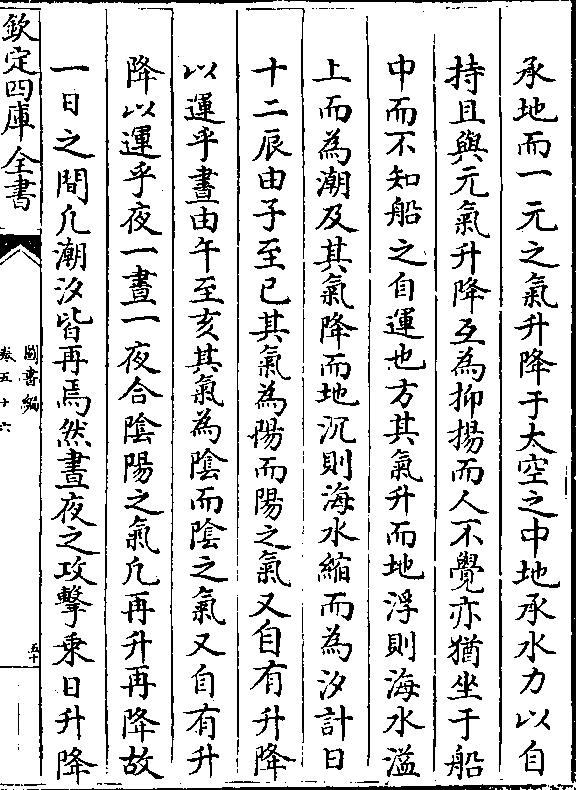 承地而一元之氣升降于太空之中地承水力以自
持且與元氣升降互為抑揚而人不覺亦猶坐于船
中而不知船之自運也方其氣升而地浮則海水溢
上而為潮及其氣降而地沉則海水縮而為汐計日
十二辰由子至巳其氣為陽而陽之氣又自有升降
以運乎晝由午至亥其氣為陰而陰之氣又自有升
降以運乎夜一晝一夜合陰陽之氣凡再升再降故
一日之間凡潮汐皆再焉然晝夜之攻擊乘日升降
欽定四庫全書
圖書編
卷五十六
五十